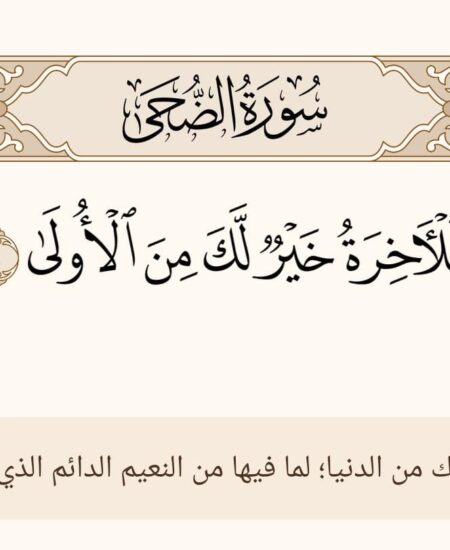 سُورَةُ الضُّحَىٰ
لۡأٓخِرَةُ خَيۡرٞ لَّكَ مِنَ ٱلۡأُولَىٰ
ك من الدنيا؛ لما فيها من النعيم الدائم الذي